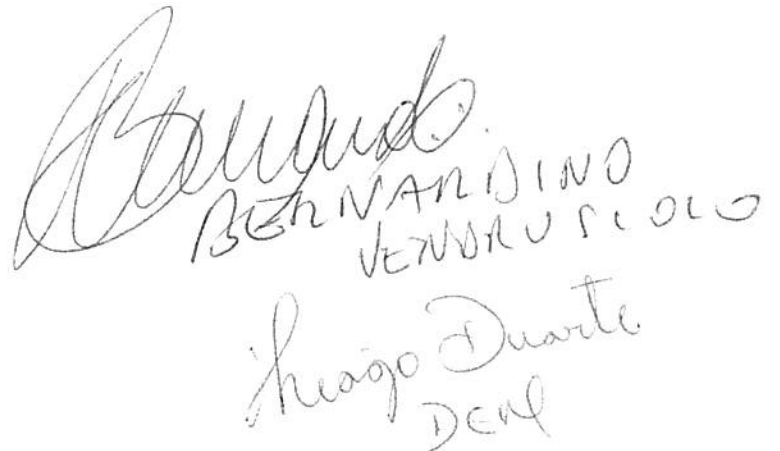 BERNARDINO
VENDRUSCOLO
Thiago Duarte
DEM